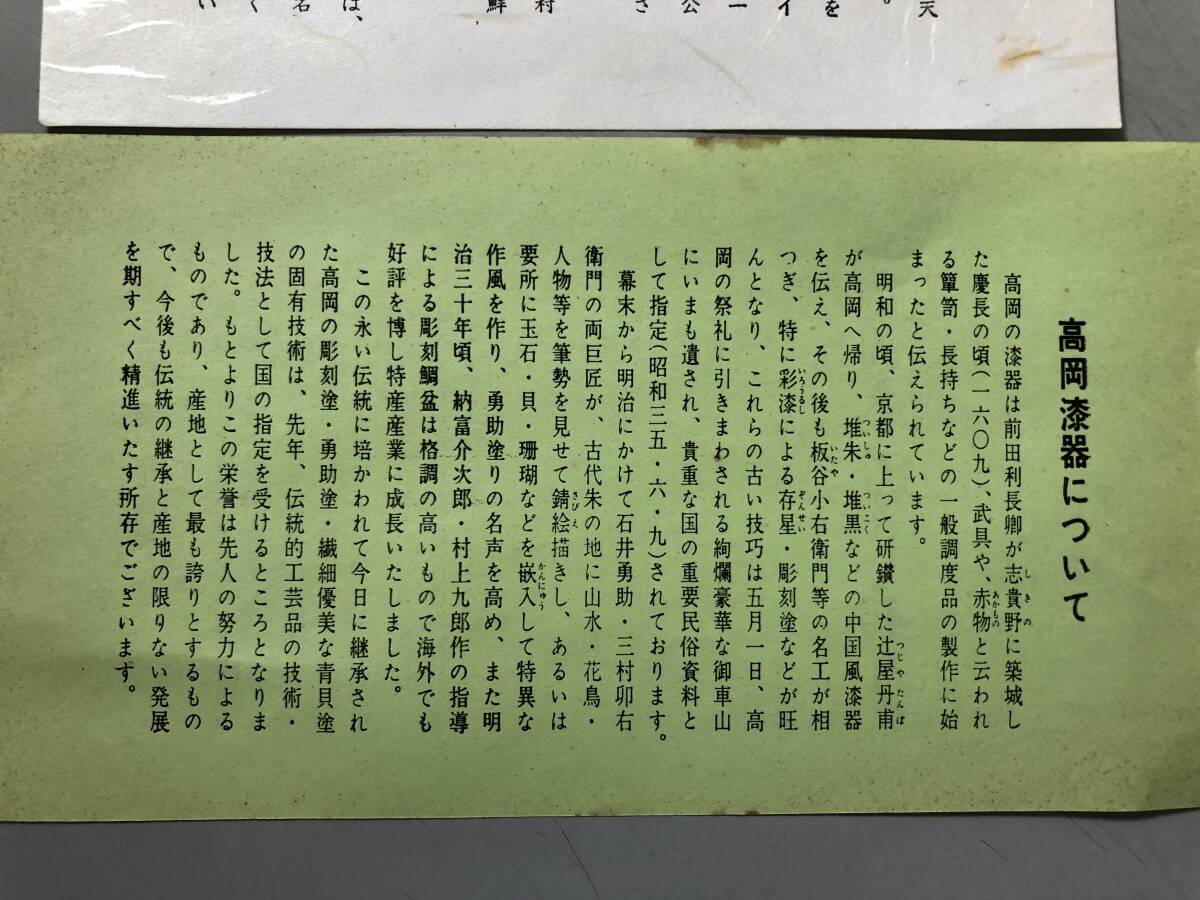 天
。
を
イ
ー
公
さ
村
鮮
は、
名
く
い
高岡漆器について
高岡の漆器は前田利長卿が志貴野に築城し
しきの
た慶長の頃(一六〇九)、武具や、赤物と云われ
あかもの
る簞笥・長持ちなどの一般調度品の製作に始
まったと伝えられています。
明和の頃、京都に上って研鑽した辻屋丹甫
つじやたんぽ
が高岡へ帰り、堆朱・堆黒などの中国風漆器
ついしゅ ついこく
を伝え、その後も板谷小右衛門等の名工が相
いたや
つぎ、特に彩漆による存星・彫刻塗などが旺
いろうるし ぞんせい
んとなり、これらの古い技巧は五月一日、高
岡の祭礼に引きまわされる絢爛豪華な御車山
にいまも遺され、貴重な国の重要民俗資料と
して指定(昭和三五・六・九)されております。
幕末から明治にかけて石井勇助・三村卯右
衛門の両巨匠が、古代朱の地に山水・花鳥・
人物等を筆勢を見せて錆絵描きし、あるいは
さびえ
要所に玉石・貝・珊瑚などを嵌入して特異な
かんにゅう
作風を作り、勇助塗りの名声を高め、また明
治三十年頃、納富介次郎・村上九郎作の指導
による彫刻鯛盆は格調の高いもので海外でも
好評を博し特産産業に成長いたしました。
この永い伝統に培かわれて今日に継承され
た高岡の彫刻塗・勇助塗・繊細優美な青貝塗
の固有技術は、先年、伝統的工芸品の技術・
技法として国の指定を受けるところとなりま
した。もとよりこの栄誉は先人の努力による
ものであり、産地として最も誇りとするもの
で、今後も伝統の継承と産地の限りない発展
を期すべく精進いたす所存でございます。